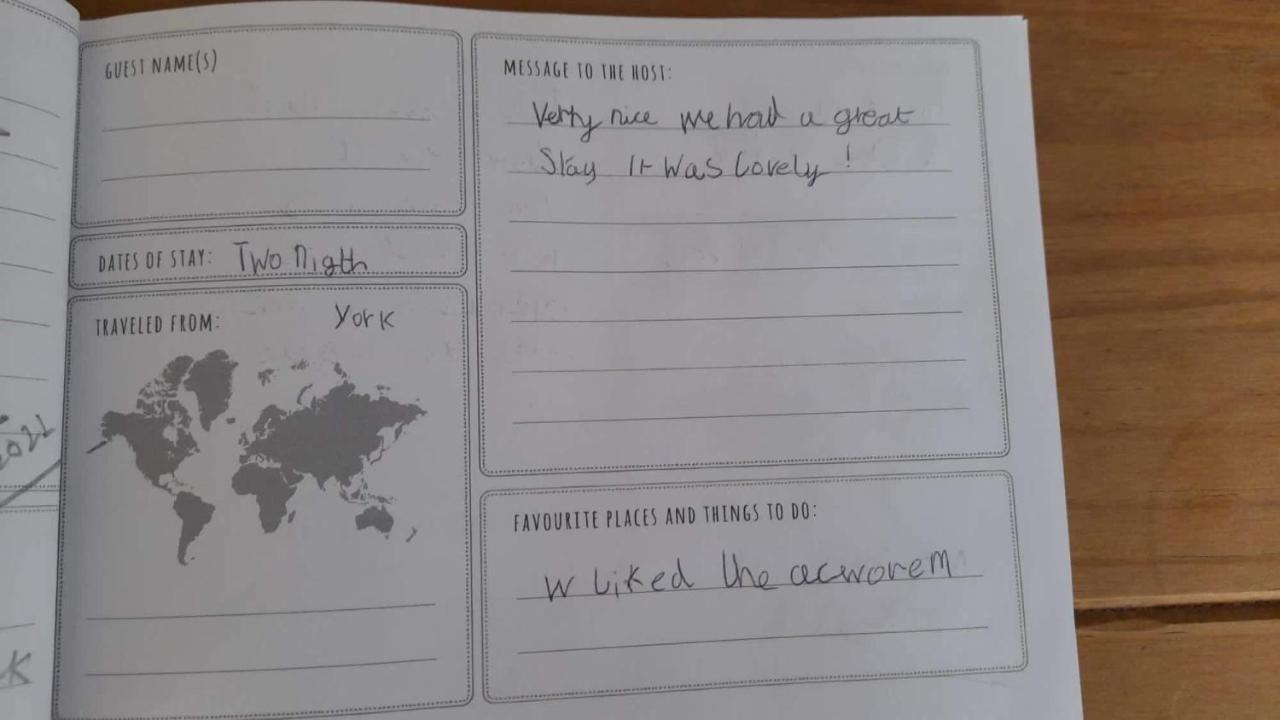 GUEST NAME(S)
DATES OF STAY: Two Nigth
TRAVELED FROM: York
MESSAGE TO THE HOST:
Verry nice we had a great
Stay It Was Lovely !
FAVOURITE PLACES AND THINGS TO DO:
W Liked the acworem
2021
K